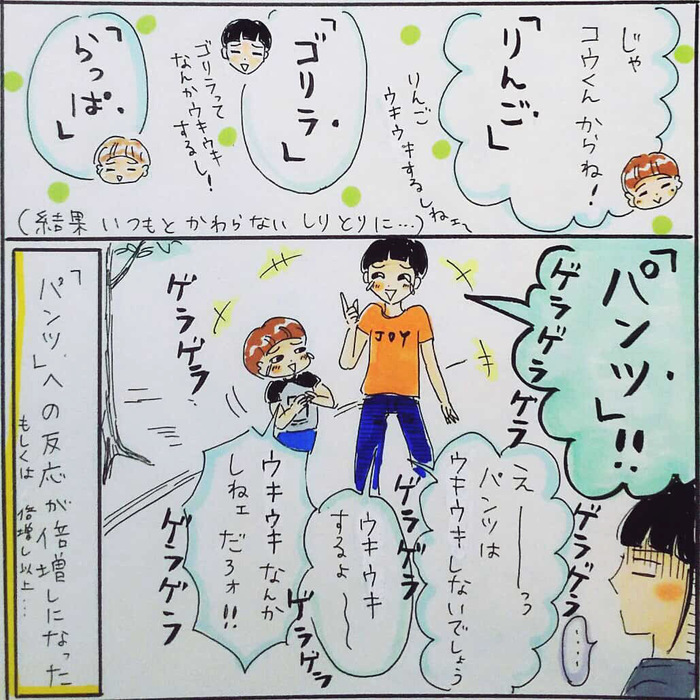 じゃ
コウくんからね!
「りんご」
りんご
ウキウキするしねェ〜
「ゴリラ」
ゴリラって
なんかウキウキ
するし!
「らっぱ」
(結果 いつもとかわらない しりとりに…)
「パンツ」!!
ゲラゲラ
ゲラ
ゲラゲラ
JOY
えーーっ
パンツは
ウキウキしないでしょう
ゲラゲラ
ゲラゲラ
……
ウキウキ
するよ〜
ゲラゲラ
ウキウキなんか
しねェだろォ!!
ゲラゲラ
「パンツ」への反応が倍増しになった
もしくは 倍増し以上…